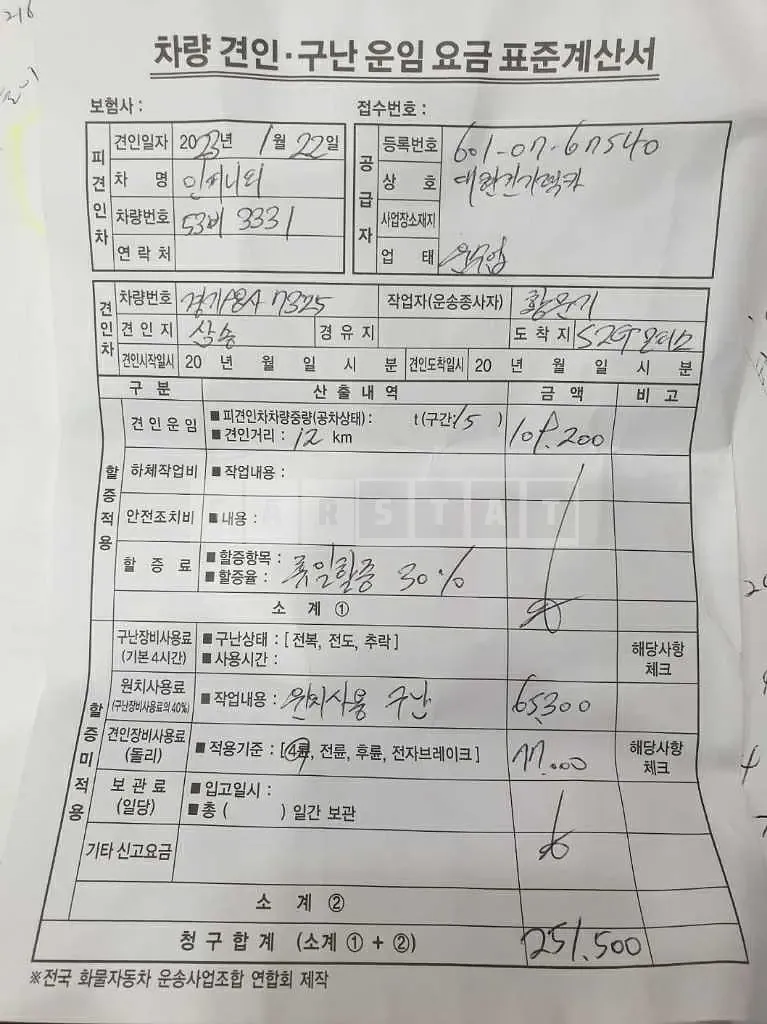 216
차량 견인·구난 운임 요금 표준계산서
보험사 :
접수번호 :
피견인차
견인일자 2023년 1월 22일
차 명 인피니티
차량번호 53비 3331
연락처
공급자
등록번호 601-07-67540
상 호
사업장소재지
업 태 운수업
견인차
차량번호 7325 작업자(운송종사자)
견인지 삼송 경유지 도착지
견인시작일시 20 년 월 일 시 분 견인도착일시 20 년 월 일 시 분
구 분 산 출 내 역 금 액 비 고
할증적용
견인운임 ■ 피견인차차량중량(공차상태) : t (구간:15 ) 109.200
■ 견인거리 : 12 km
하체작업비 ■ 작업내용 :
안전조치비 ■ 내용 :
할 증 료 ■ 할증항목 : 휴일할증 30%
■ 할증율 :
소 계 ①
할증미적용
구난장비사용료 (기본 4시간) ■ 구난상태 : [ 전복, 전도, 추락 ] 해당사항 체크
■ 사용시간 :
원치사용료 (구난장비사용료의 40%) ■ 작업내용 : 윈치사용 구난 65.300
견인장비사용료 (돌리) ■ 적용기준 : [ 4륜, 전륜, 후륜, 전자브레이크 ] 77.000 해당사항 체크
보 관 료 (일당) ■ 입고일시 :
■ 총 ( ) 일간 보관
기타 신고요금
소 계 ②
청구합계 (소계 ① + ②) 251.500
※전국 화물자동차 운송사업조합 연합회 제작
CARSTAT